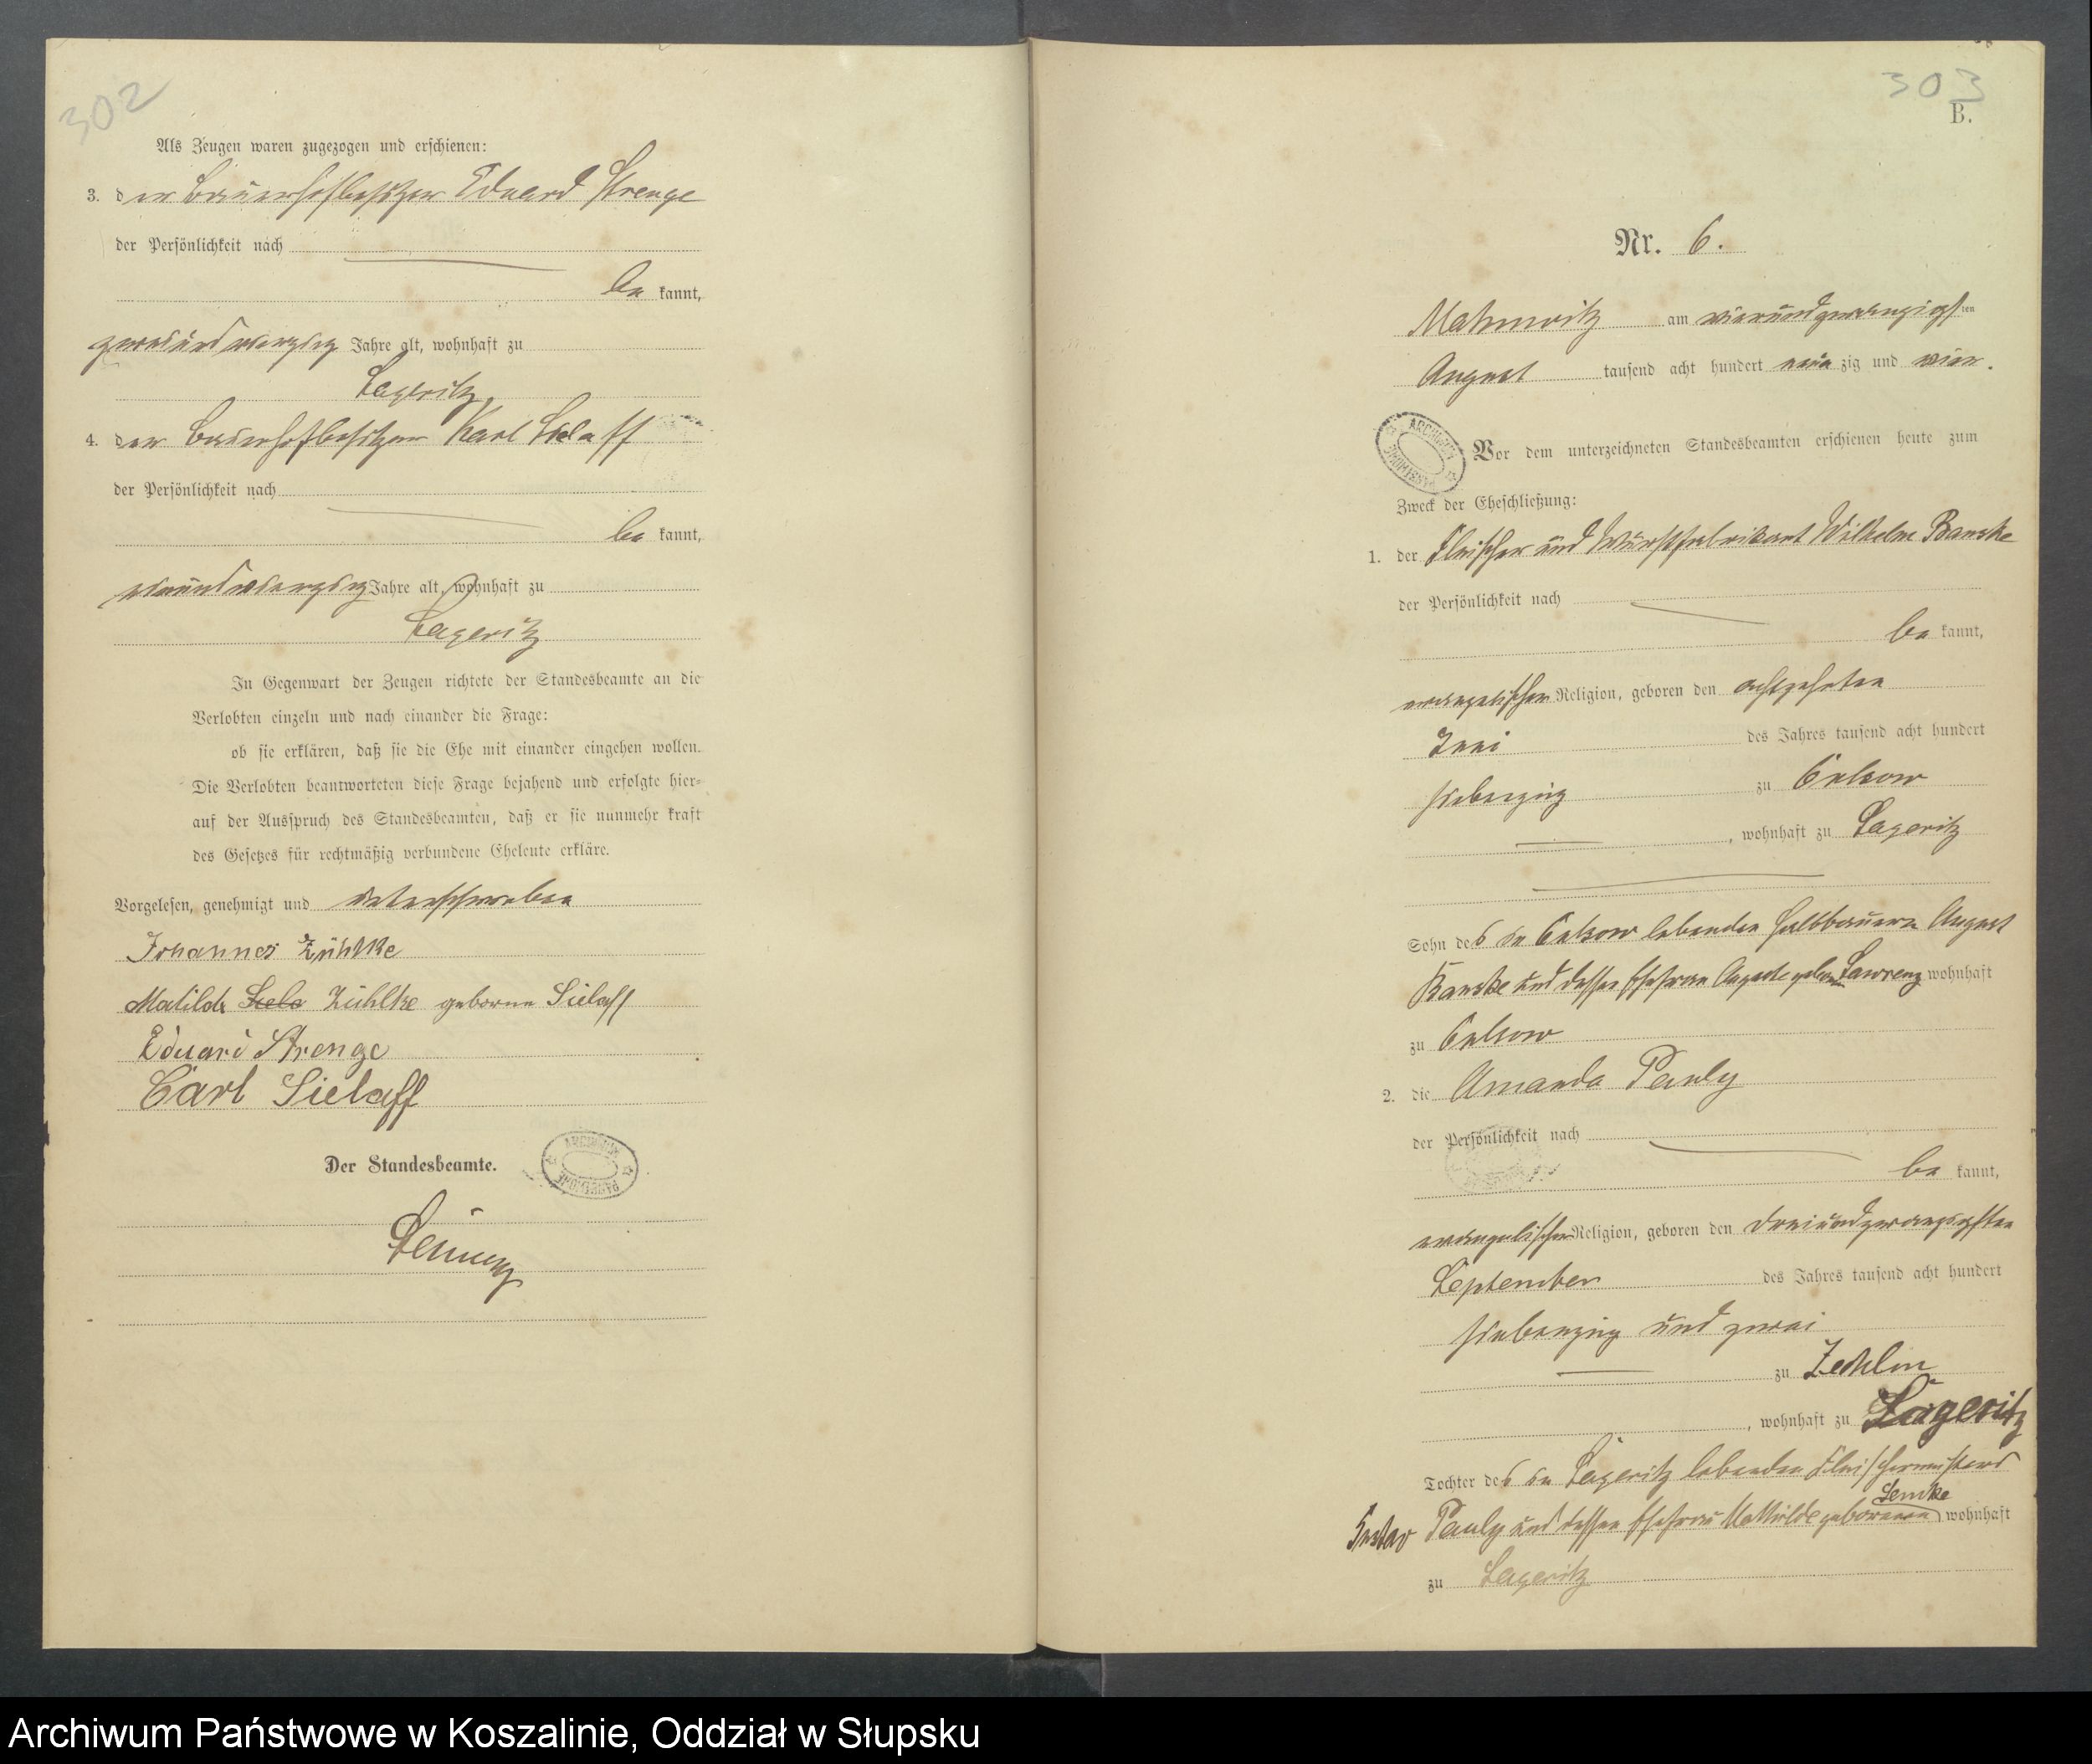 302
Als Zeugen waren zugezogen und erschienen:
3. der Bauerhofbesitzer Eduard Strenge
der Persönlichkeit nach
bekannt,
zweiundvierzig Jahre alt, wohnhaft zu
Lageritz,
4. der Bauerhofbesitzer Karl Sielaff
der Persönlichkeit nach
bekannt,
vierundvierzig Jahre alt, wohnhaft zu
Lageritz
In Gegenwart der Zeugen richtete der Standesbeamte an die
Verlobten einzeln und nach einander die Frage:
ob sie erklären, daß sie die Ehe mit einander eingehen wollen.
Die Verlobten beantworteten diese Frage bejahend und erfolgte hier-
auf der Ausspruch des Standesbeamten, daß er sie nunmehr kraft
des Gesetzes für rechtmäßig verbundene Eheleute erkläre.
Vorgelesen, genehmigt und unterschrieben
Johannes Zühlke
Matilde Siela Zühlke geborne Sielaff
Eduard Strenge
Carl Sielaff
Der Standesbeamte.
ARCHIWUM PAŃSTWOWE
303
B.
Nr. 6.
Mahnwitz am vierundzwanzigsten
August tausend acht hundert neunzig und vier.
ARCHIWUM PAŃSTWOWE
Vor dem unterzeichneten Standesbeamten erschienen heute zum
Zweck der Eheschließung:
1. der Fleischer und Wurstfabrikant Wilhelm Banske
der Persönlichkeit nach
bekannt,
evangelischer Religion, geboren den achtzehnten
Juni des Jahres tausend acht hundert
siebenzig zu
, wohnhaft zu Lageritz
Sohn des zu lebenden Halbbauern August
Banske und dessen Ehefrau geboren Lawrenz wohnhaft
zu
2. die Amanda Pauly
der Persönlichkeit nach
bekannt,
evangelischer Religion, geboren den dreiundzwanzigsten
September des Jahres tausend acht hundert
siebenzig und zwei
zu Zechlin
, wohnhaft zu Lageritz
Tochter des zu Lageritz lebenden Fleischermeisters
Lemke
Gustav Pauly und dessen Ehefrau Mathilde geborenen wohnhaft
zu Lageritz
Archiwum Państwowe w Koszalinie, Oddział w Słupsku